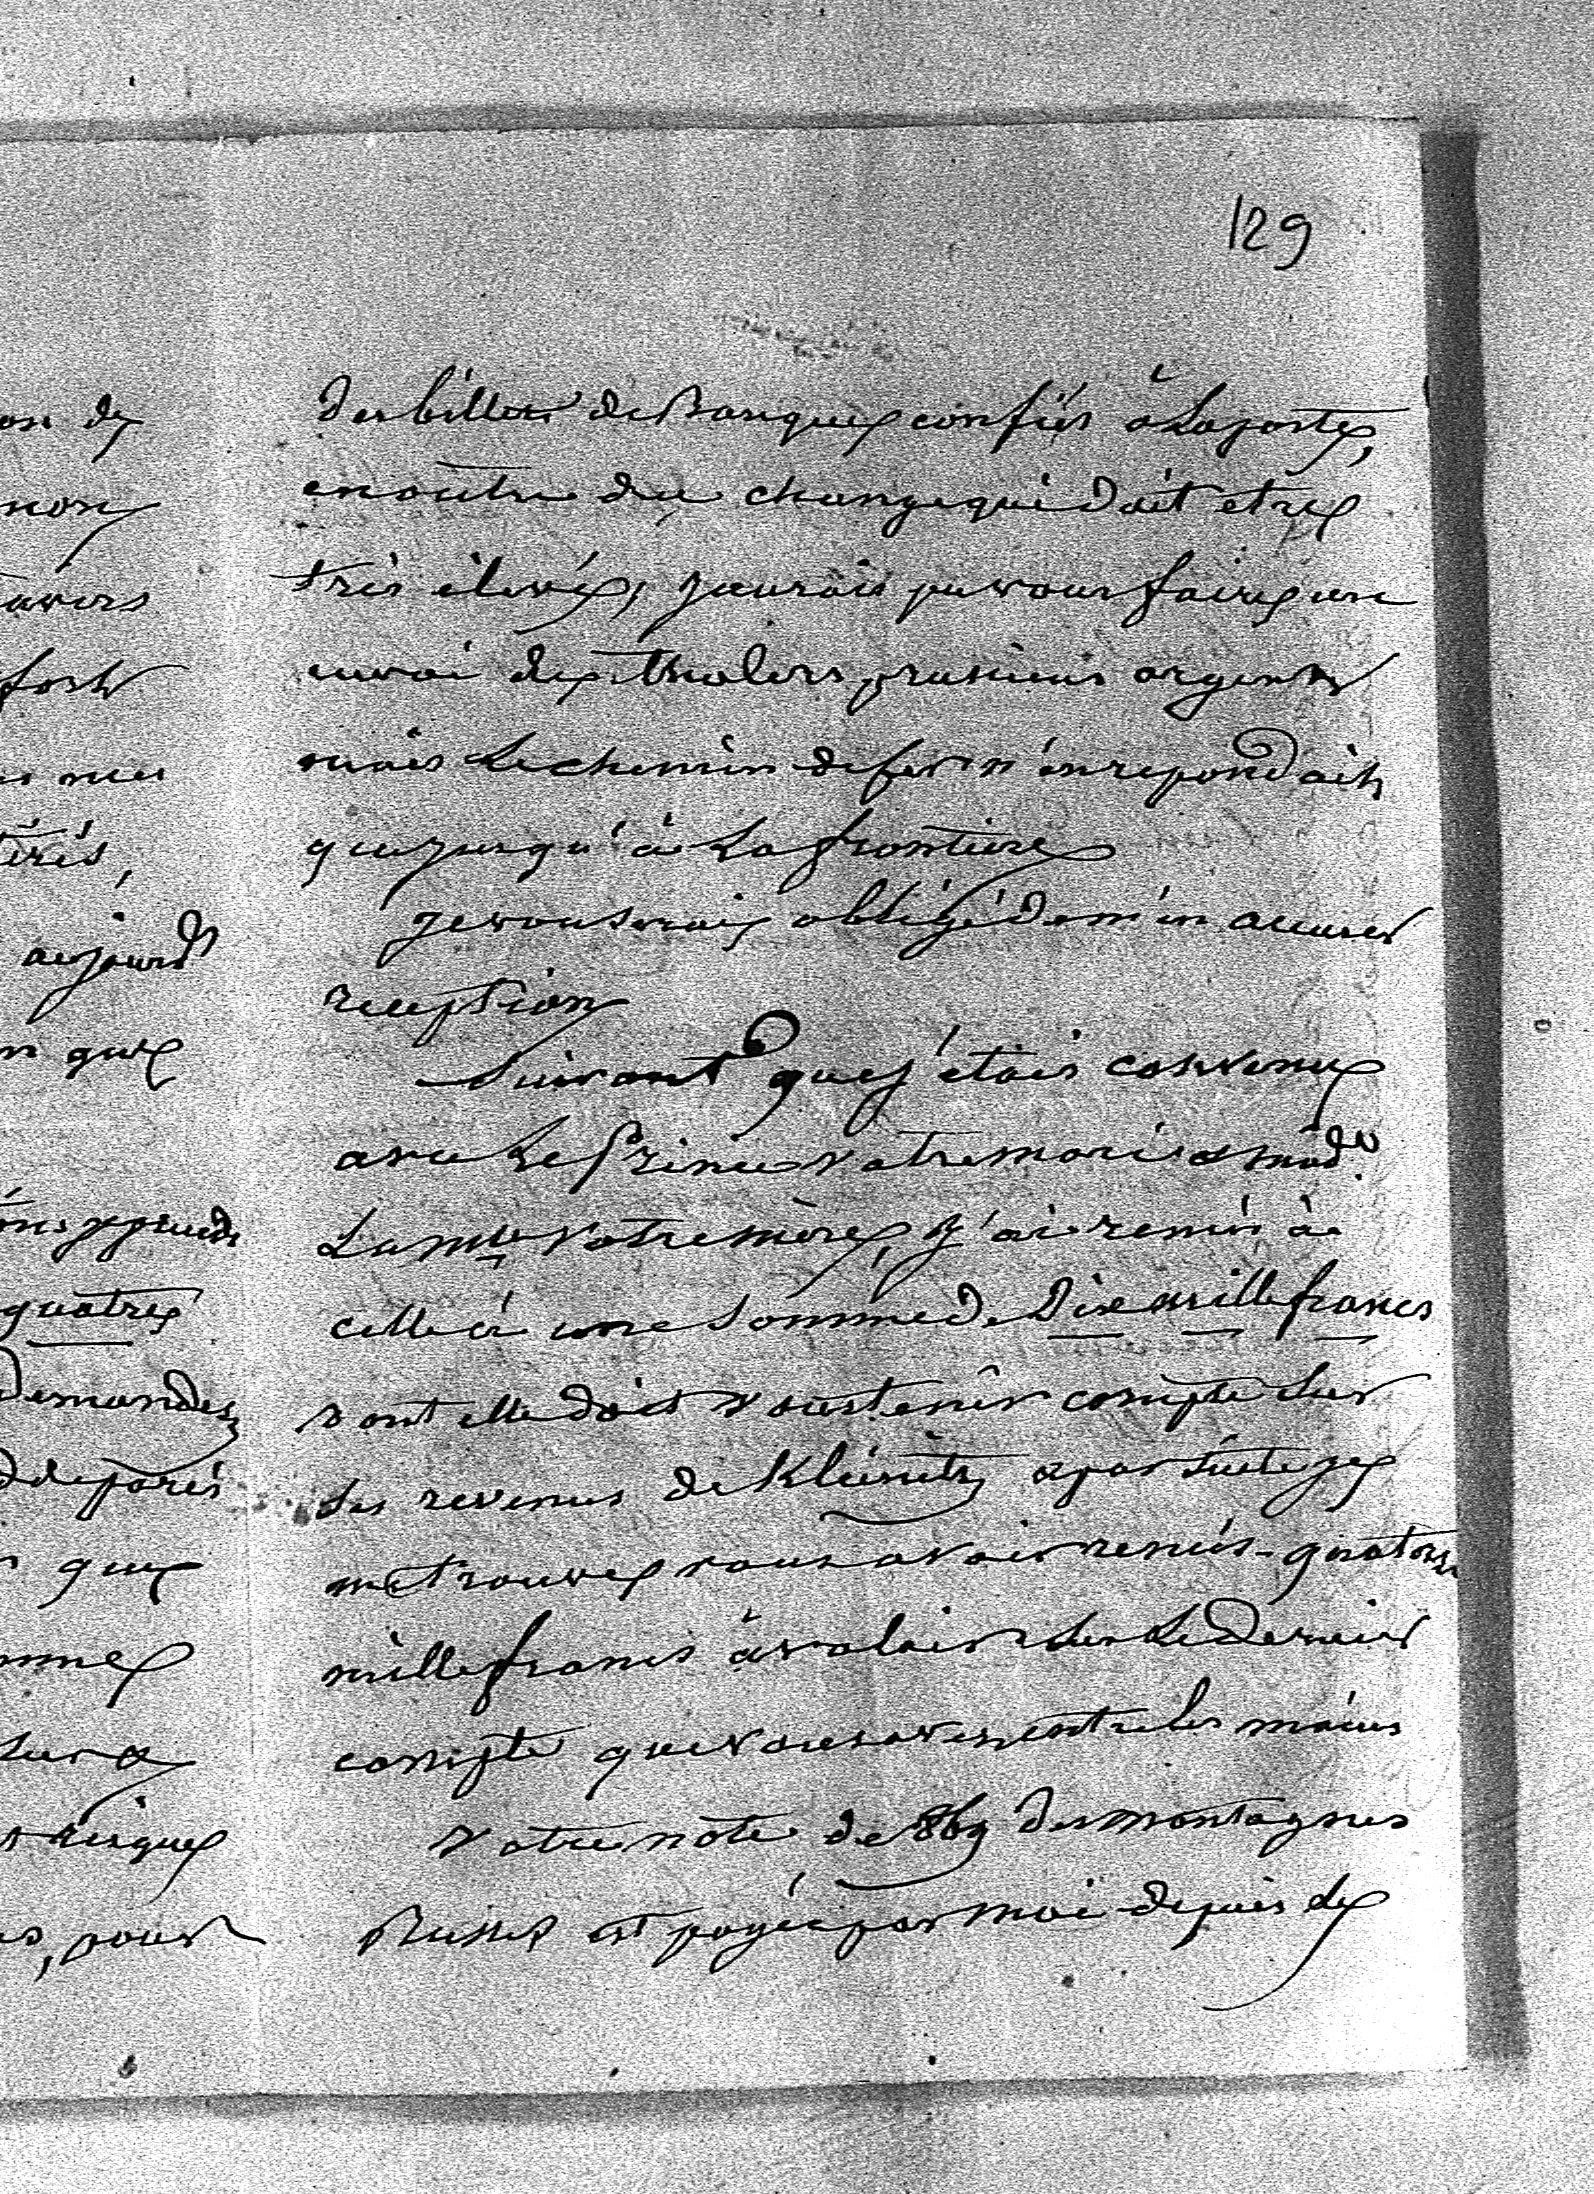 129
des billets de Banque confiés à la poste,
en outre du change qui doit etre
très élevé, j'aurais pu vous faire un
envoi de Thalers prussiens argent
mais le chemin de fer n'en repondait
que jusqu'à la frontiere
je vous serais obligé de m'en accuser
reception
Suivant que j'étais convenu
avec le Prince votre mari & mad.e
La Mise votre mère, j'ai remis à
celle ci une somme de Dix mille francs
dont elle doit vous tenir compte sur
les revenus de Kleinitz & par suite je
me trouve vous avoir remis quatorze
mille francs à valoir sur le dernier
compte que vous avez entre les mains
Votre note de 869 des montagnes
Russes est payée par moi depuis de
on de
mon
travers
fort
tirés,
aujourd
n que
quatre
Demandez
de paris
que
sur &
risque
pour